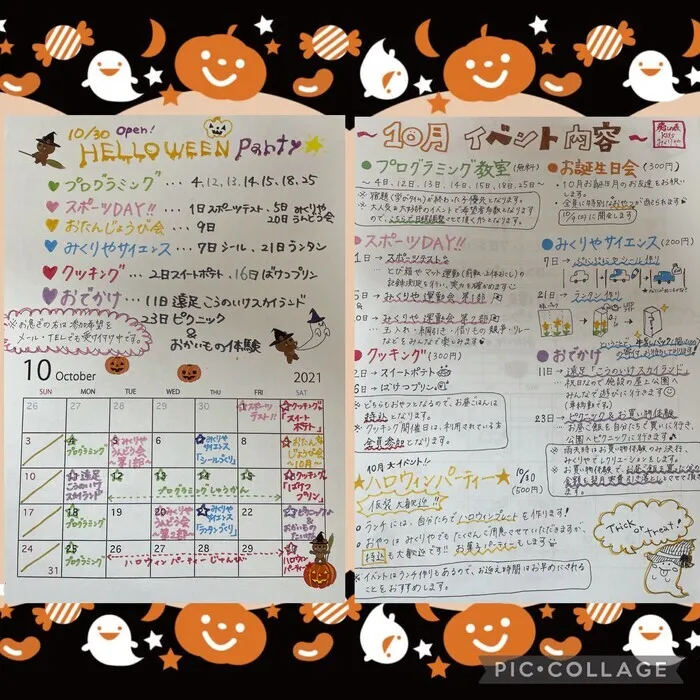 10/30 Open!
HELLOWEEN Party
プログラミング ... 4, 12, 13, 14, 15, 18, 25
スポーツDAY!! ... 1日スポーツテスト 5日 みくりや
20日 うんどう会
おたんじょうび会 ... 9日
みくりやサイエンス ... 7日シール、21日ランタン
クッキング ... 2日スイートポテト、16日ばけつプリン
おでかけ ... 11日 遠足 こうのいけスカイランド
23日 ピクニック
&
おかいもの体験
※お急ぎの方は参加希望を
メール・TELでも受け付け中です。
10 October 2021
SUN MON TUE WED THU FRI SAT
26 27 28 29 30 スポーツテスト!! クッキング「スイートポテト」
3 プログラミング みくりやうんどう会〜第1部〜 みくりやサイエンス「シールづくり」 おたんじょうび会〜10月〜
10 遠足こうのいけスカイランド プログラミングしゅうかん クッキング「ばけつプリン」
17 プログラミング みくりやうんどう会〜第2部〜 みくりやサイエンス「ランタンづくり」 ピクニック&おかいものたいけん
24 31 25 プログラミング 26 27 28 29 ハロウィンパーティーじゅんび ハロウィンパーティー
〜10月 イベント内容〜
プログラミング教室(無料)
〜4日、12日、13日、14日、15日、18日、25日〜
※宿題(学びタイム)が終わった子優先となります。
※大人気&大好評のイベントで希望者多数となります
ので、こちらで日程調整させて頂く形となります。
お誕生日会(300円)
・10月お誕生月のお友達をお祝い
します。
・全員に特別なおやつが出されます
10/9(土)に開催します
スポーツDAY!!
1日→スポーツテスト
・とび箱やマット運動(前転・上体おこし)の
5日→みくりや運動会 第1部
20日→みくりや運動会 第2部
・玉入れ・綱引き・借りもの競争・リレー
などをみんなで楽しみます
みくりやサイエンス(200円)
7日→ぷにぷにシール作り
21日→ランタン作り
クッキング(300円)
2日→スイートポテト
16日→ばけつプリン
※どちらもおやつとなるので、お昼ごはんは
持込となります。
※クッキング開催日は、利用されている方
全員参加となります。
おでかけ
11日→遠足「こうのいけスカイランド」
・祝日なので施設の屋上公園へ
みんなで遊びに行きます
(車移動です)
23日→ピクニック&お買い物体験
・お昼ご飯を自分たちで買いに行き、
公園へピクニックに行きます
※雨天時はお買い物体験のみ決行、
みくりやでレクリエーションをします。
10月大イベント!!
ハロウィンパーティー 10/30
(500円)
仮装大歓迎!!
ランチには、自分たちでハロウィンプレートを作ります!
おやつはみくりやでもたくさんご用意させていただきますが、
持込も大歓迎です!!お菓子パーティーもします
※イベントはランチ作りもあるので、お迎え時間はお早めにされる
ことをおすすめします。
Trick
or
Treat!
PIC•COLLAGE